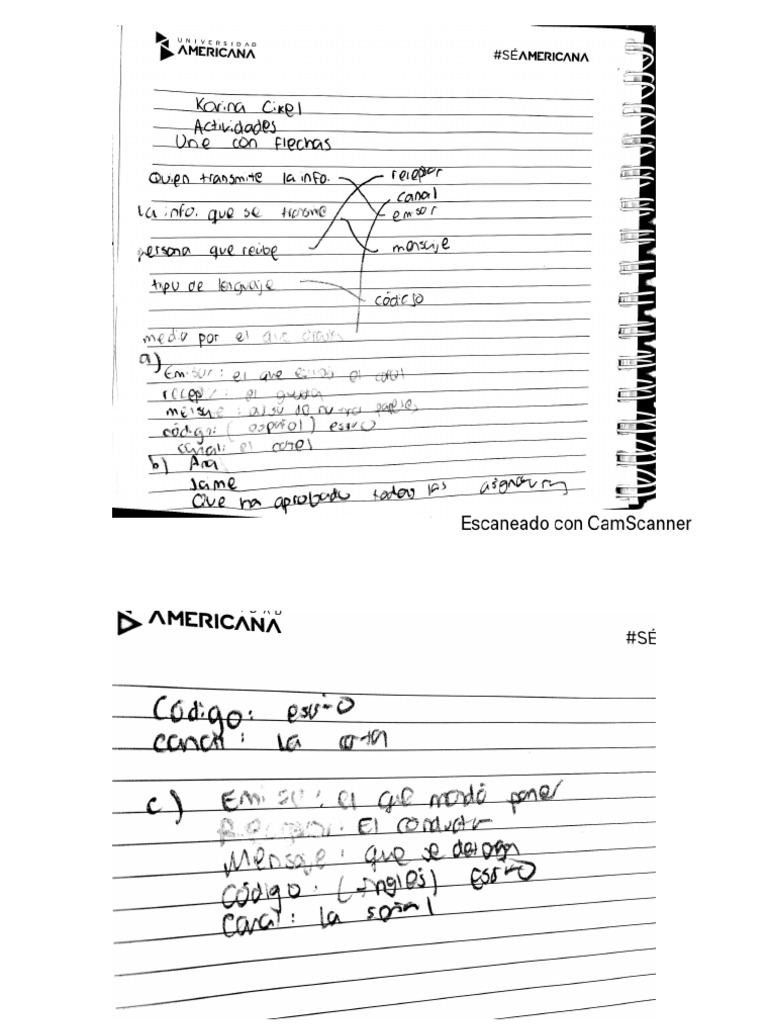 UNIVERSIDAD
AMERICANA
#SÉAMERICANA
Karina Cixel
Actividades
Une con flechas
Quien transmite la info.
receptor
canal
la info. que se transmite
emisor
persona que recibe
mensaje
tipo de lenguaje
código
medio por el que circula
a)
Emisor: el que el cartel
receptor: el
mensaje:
código: (español)
canal: el cartel
b) Ana
Jaime
Que ha aprobado todas las asignaturas
Escaneado con CamScanner
AMERICANA
#SÉ
Código:
canal: la carta
c) Emisor: el que mandó poner
Receptor: El conductor
Mensaje: que se detenga
Código: (inglés)
Canal: la señal